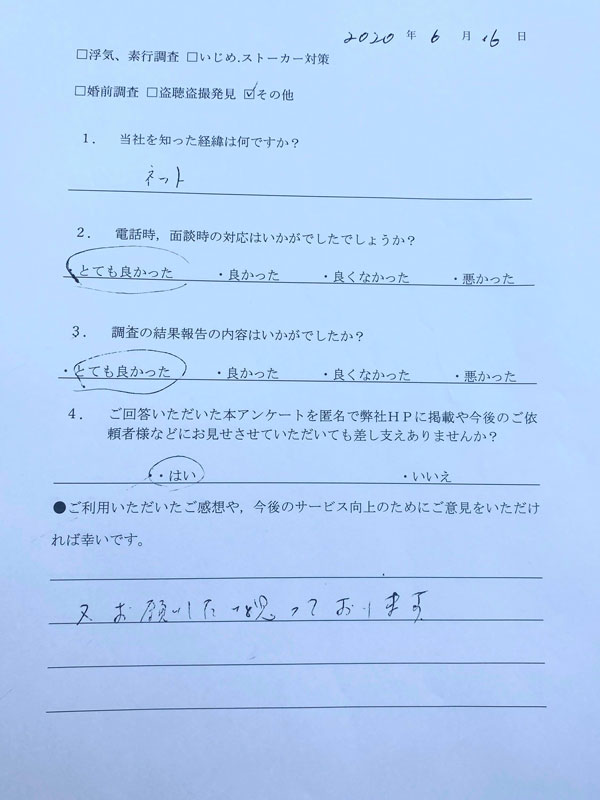 2020 年 6 月 16 日
□浮気、素行調査 □いじめ.ストーカー対策
□婚前調査 □盗聴盗撮発見 ☑その他
1. 当社を知った経緯は何ですか？
ネット
2. 電話時，面談時の対応はいかがでしたでしょうか？
・とても良かった ・良かった ・良くなかった ・悪かった
3. 調査の結果報告の内容はいかがでしたか？
・とても良かった ・良かった ・良くなかった ・悪かった
4. ご回答いただいた本アンケートを匿名で弊社ＨＰに掲載や今後のご依
頼者様などにお見せさせていただいても差し支えありませんか？
・はい ・いいえ
●ご利用いただいたご感想や，今後のサービス向上のためにご意見をいただけ
れば幸いです。
又お願いしたいと思っております